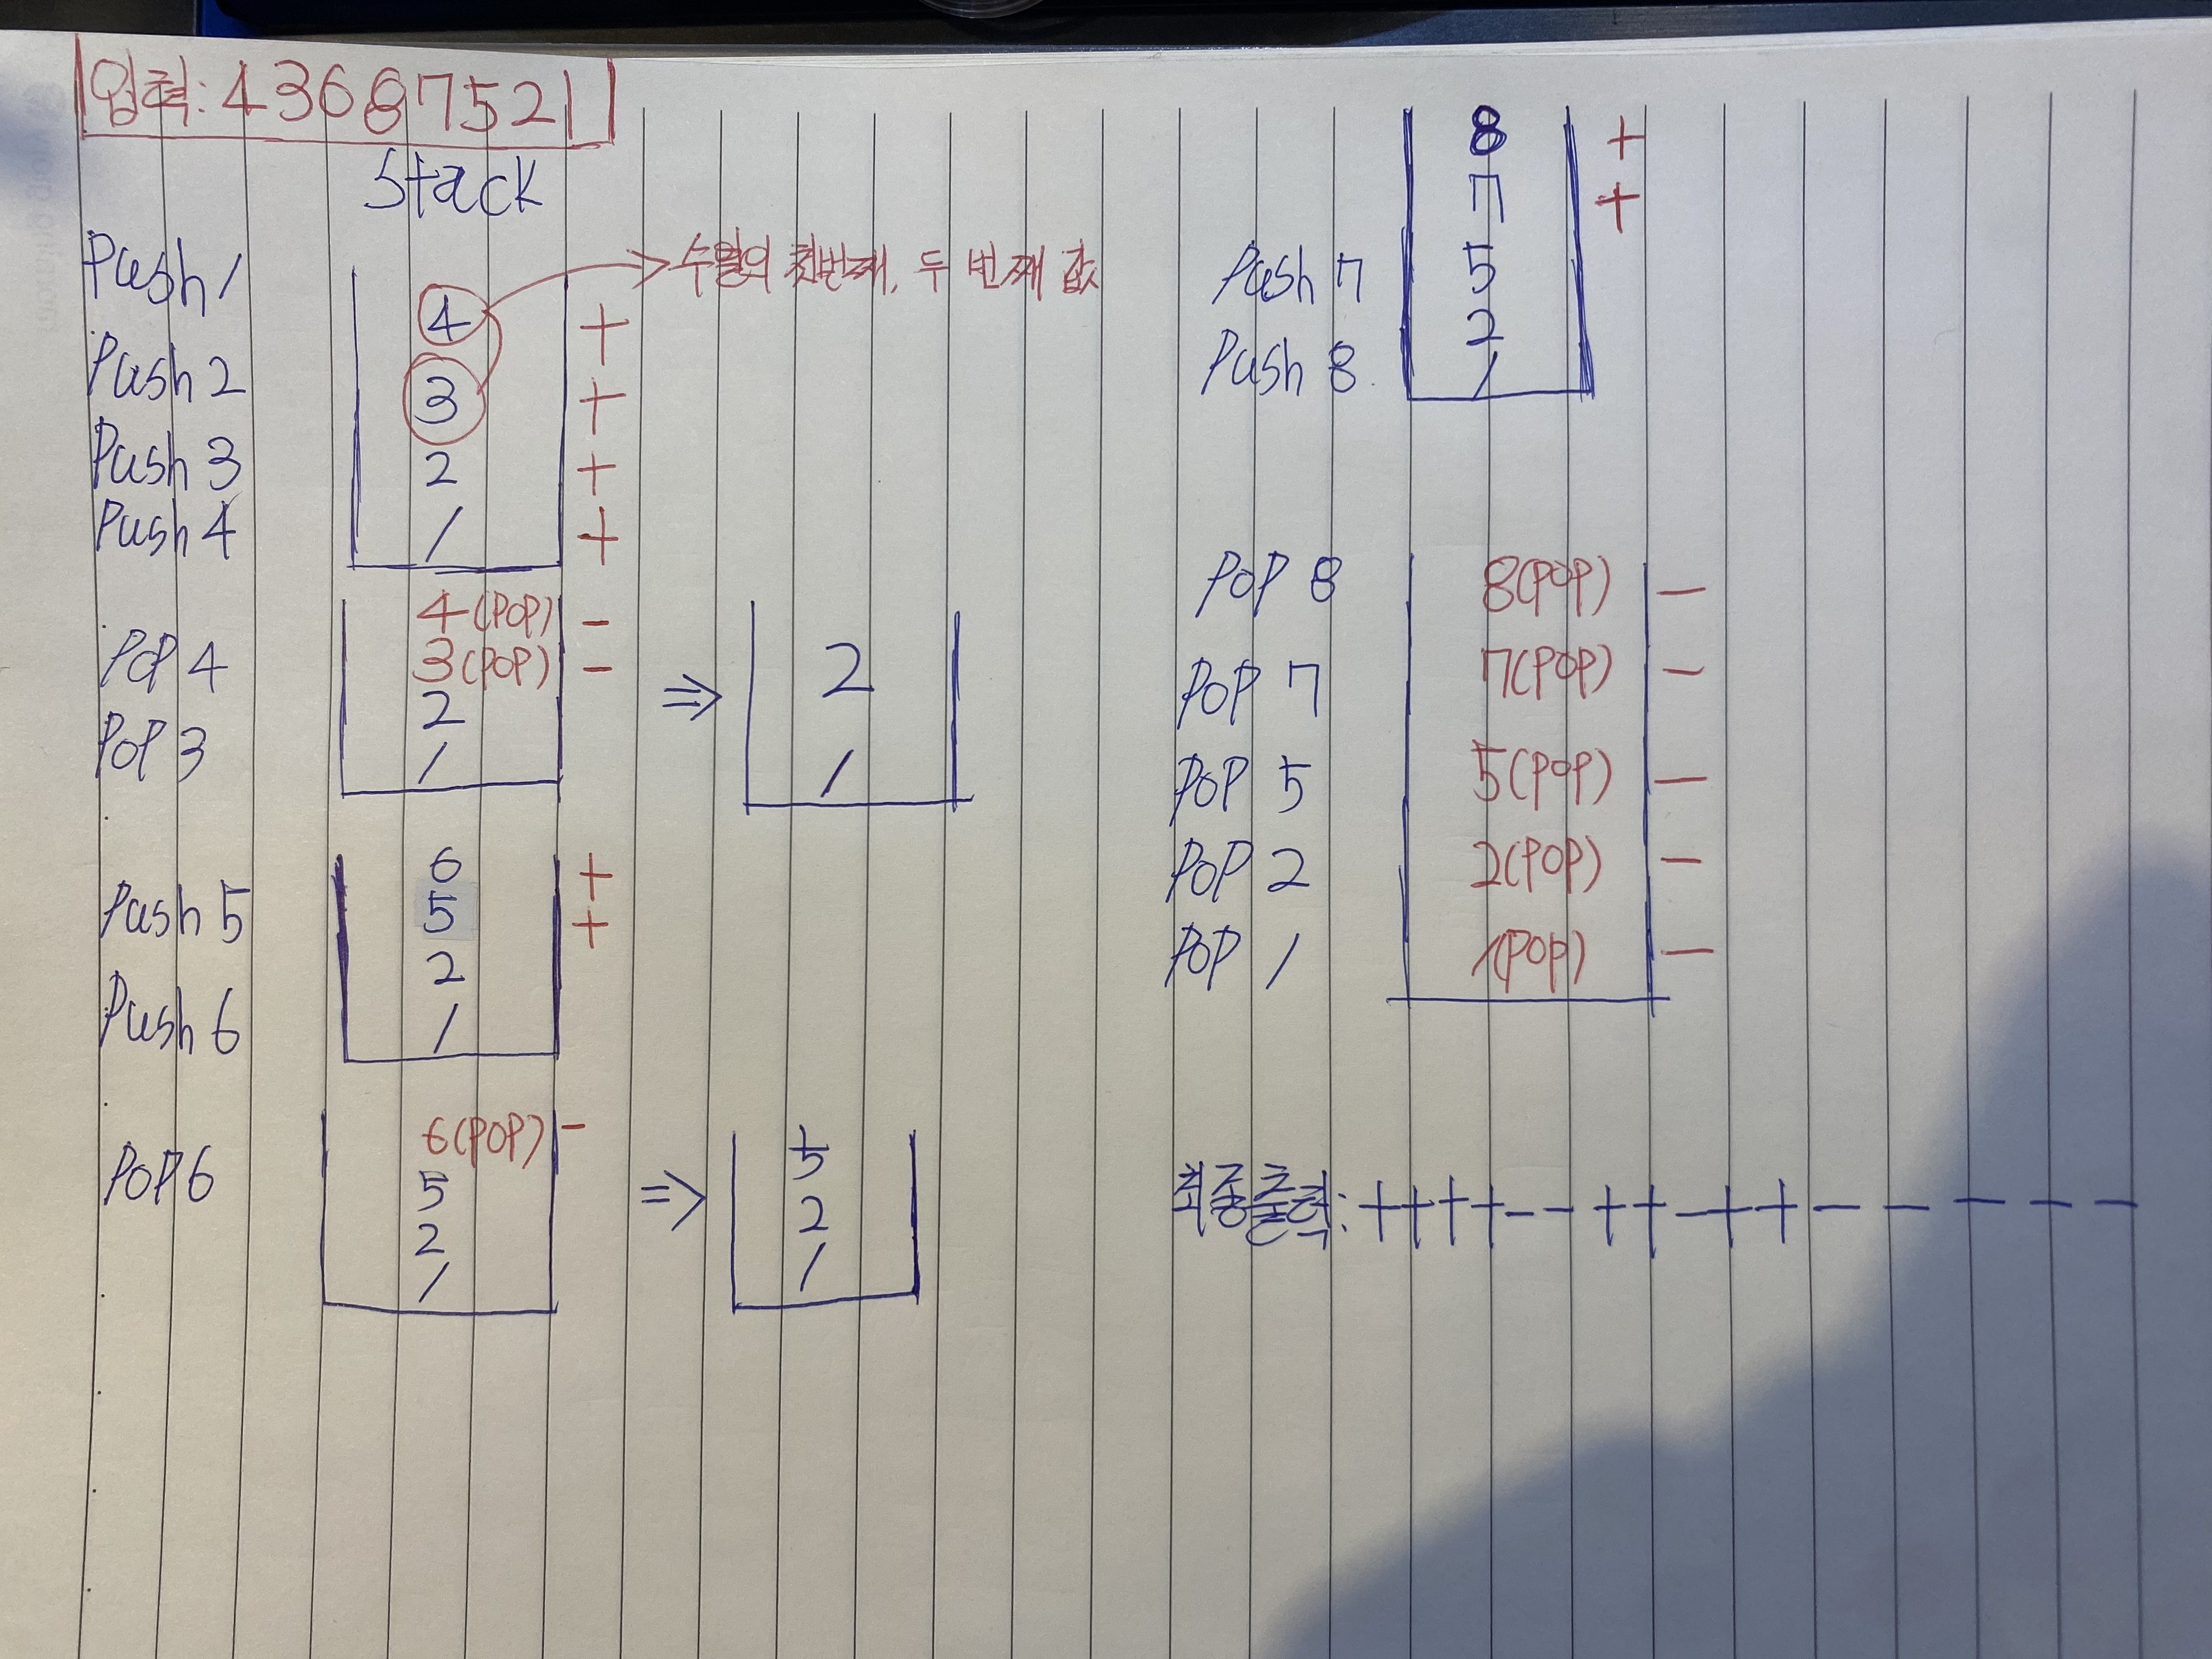 입력: 43687521
Stack
Push 1
Push 2
Push 3
Push 4
4 +
3 +
2 +
1 +
수열의 첫번째, 두 번째 값
POP 4
POP 3
4(POP) -
3(POP) -
2
1
⇒
2
1
Push 5
Push 6
6 +
5 +
2
1
POP 6
6(POP) -
5
2
1
⇒
5
2
1
Push 7
Push 8
8 +
7 +
5
2
1
POP 8
POP 7
POP 5
POP 2
POP 1
8(POP) -
7(POP) -
5(POP) -
2(POP) -
1(POP) -
최종출력: ++++--++-++-----